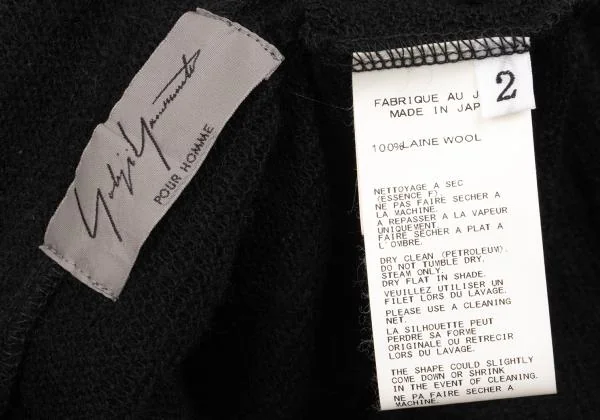 Yohji Yamamoto
POUR HOMME
2
FABRIQUE AU J
MADE IN JAP
100% LAINE WOOL
NETTOYAGE A SEC
(ESSENCE F)
NE PAS FAIRE SECHER A
LA MACHINE.
A REPASSER A LA VAPEUR
UNIQUEMENT.
FAIRE SECHER A PLAT A
L'OMBRE.
DRY CLEAN (PETROLEUM).
DO NOT TUMBLE DRY.
STEAM ONLY.
DRY FLAT IN SHADE.
VEUILLEZ UTILISER UN
FILET LORS DU LAVAGE.
PLEASE USE A CLEANING
NET.
LA SILHOUETTE PEUT
PERDRE SA FORME
ORIGINALE OU RETRECIR
LORS DU LAVAGE.
THE SHAPE COULD SLIGHTLY
COME DOWN OR SHRINK
IN THE EVENT OF CLEANING.
NE PA FAIRE SECHER A
MACHINE.